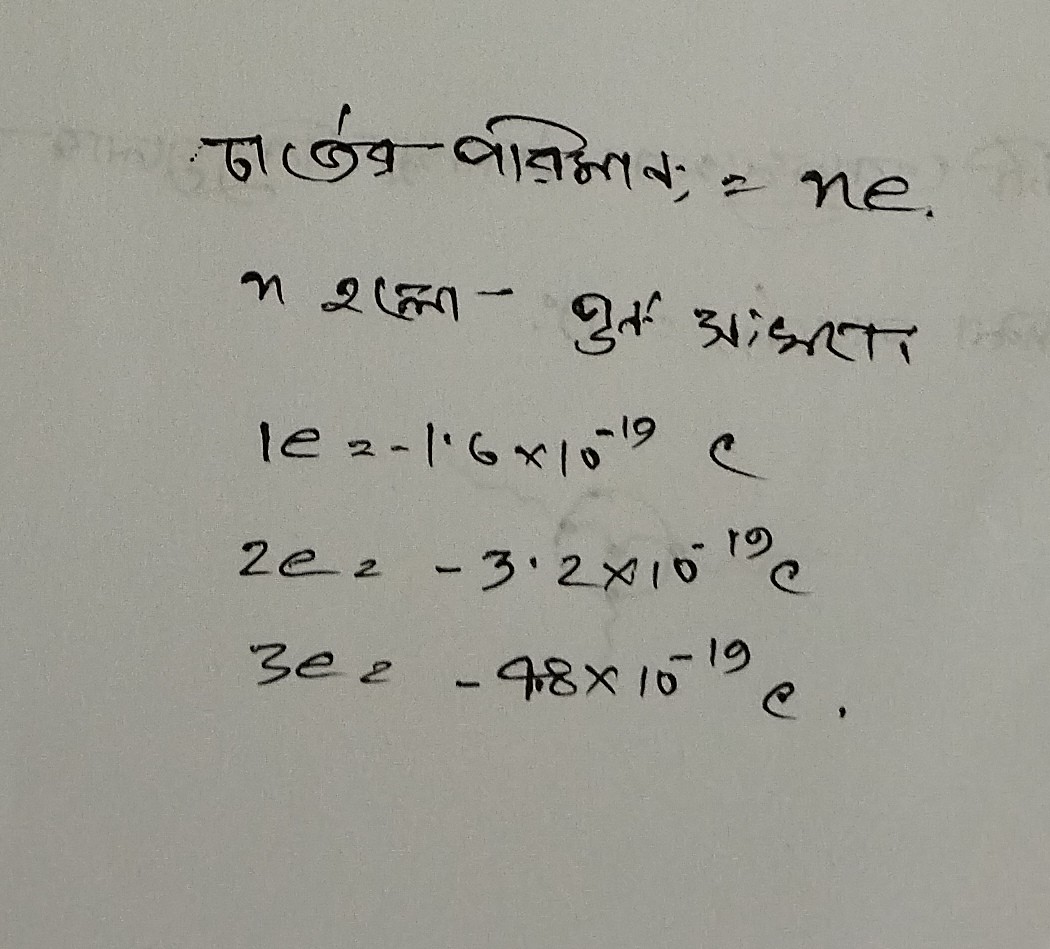 চার্জের পরিমান; = ne.
n হলো - পুর্ন সংখ্যা।
1e = -1.6×10⁻¹⁹ c
2e = -3.2×10⁻¹⁹ c
3e = -4.8×10⁻¹⁹ c.